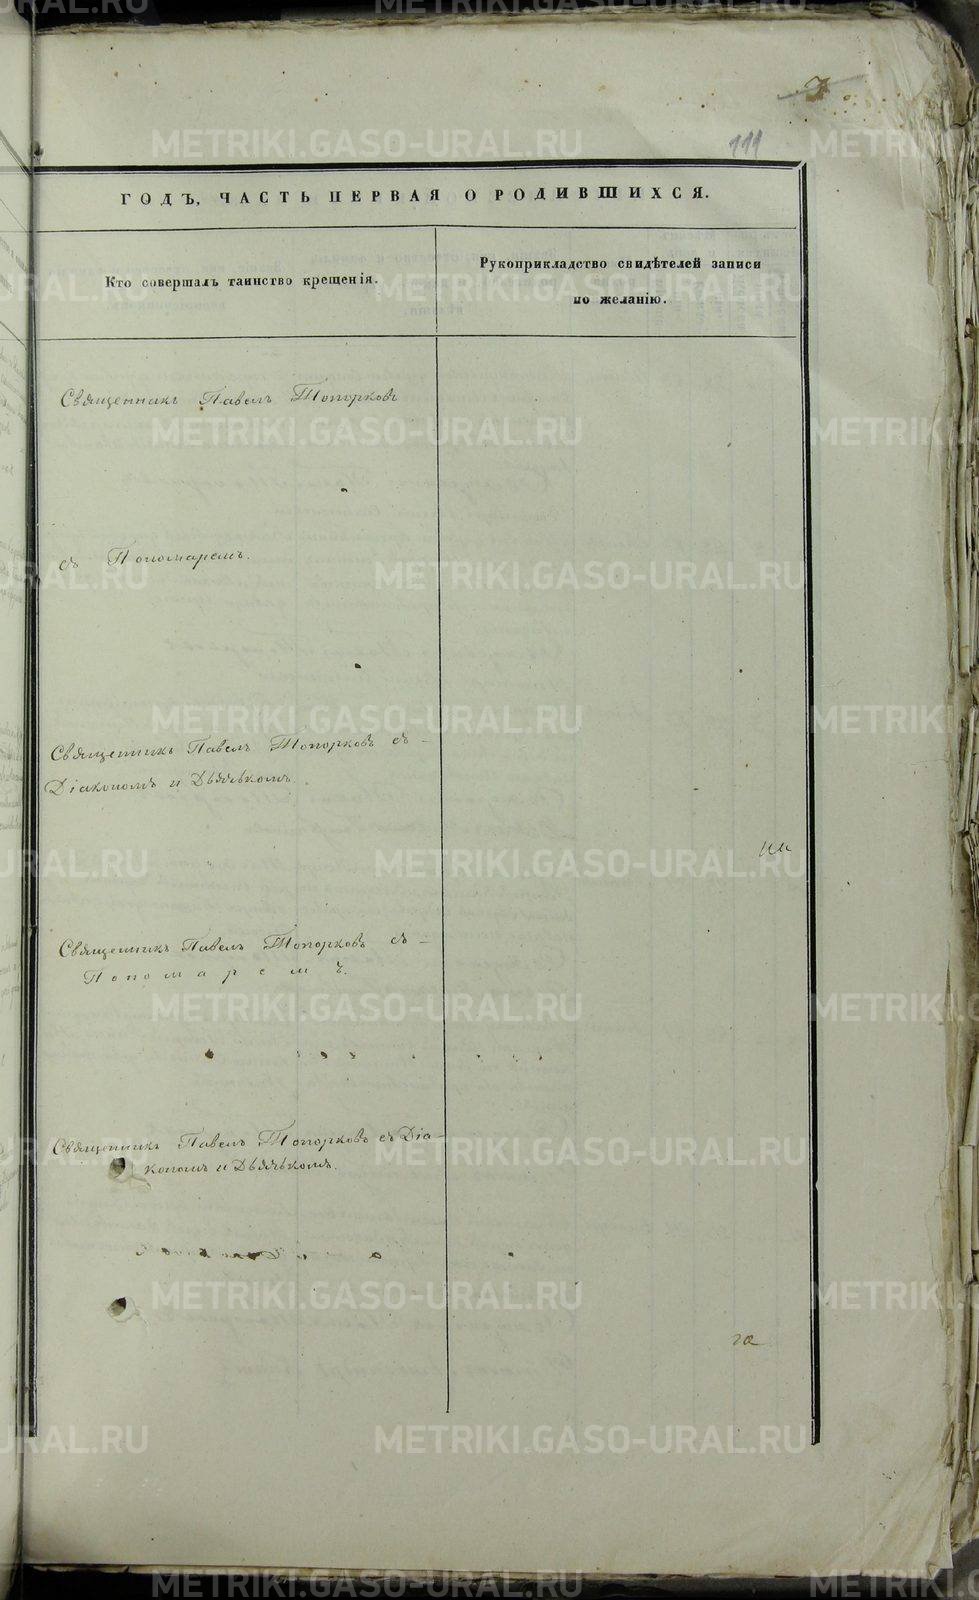 111
ГОДЪ, ЧАСТЬ ПЕРВАЯ О РОДИВШИХСЯ.
Кто совершалъ таинство крещенія.
Рукоприкладство свидѣтелей записи
по желанію.
Священникъ Павелъ Топорковъ
съ Пономаремъ.
Священникъ Павелъ Топорковъ съ
Діакономъ и Дьячькомъ.
Священникъ Павелъ Топорковъ съ
Пономаремъ.
Священникъ Павелъ Топорковъ съ Діа-
кономъ и Дьячькомъ.
METRIKI.GASO-URAL.RU